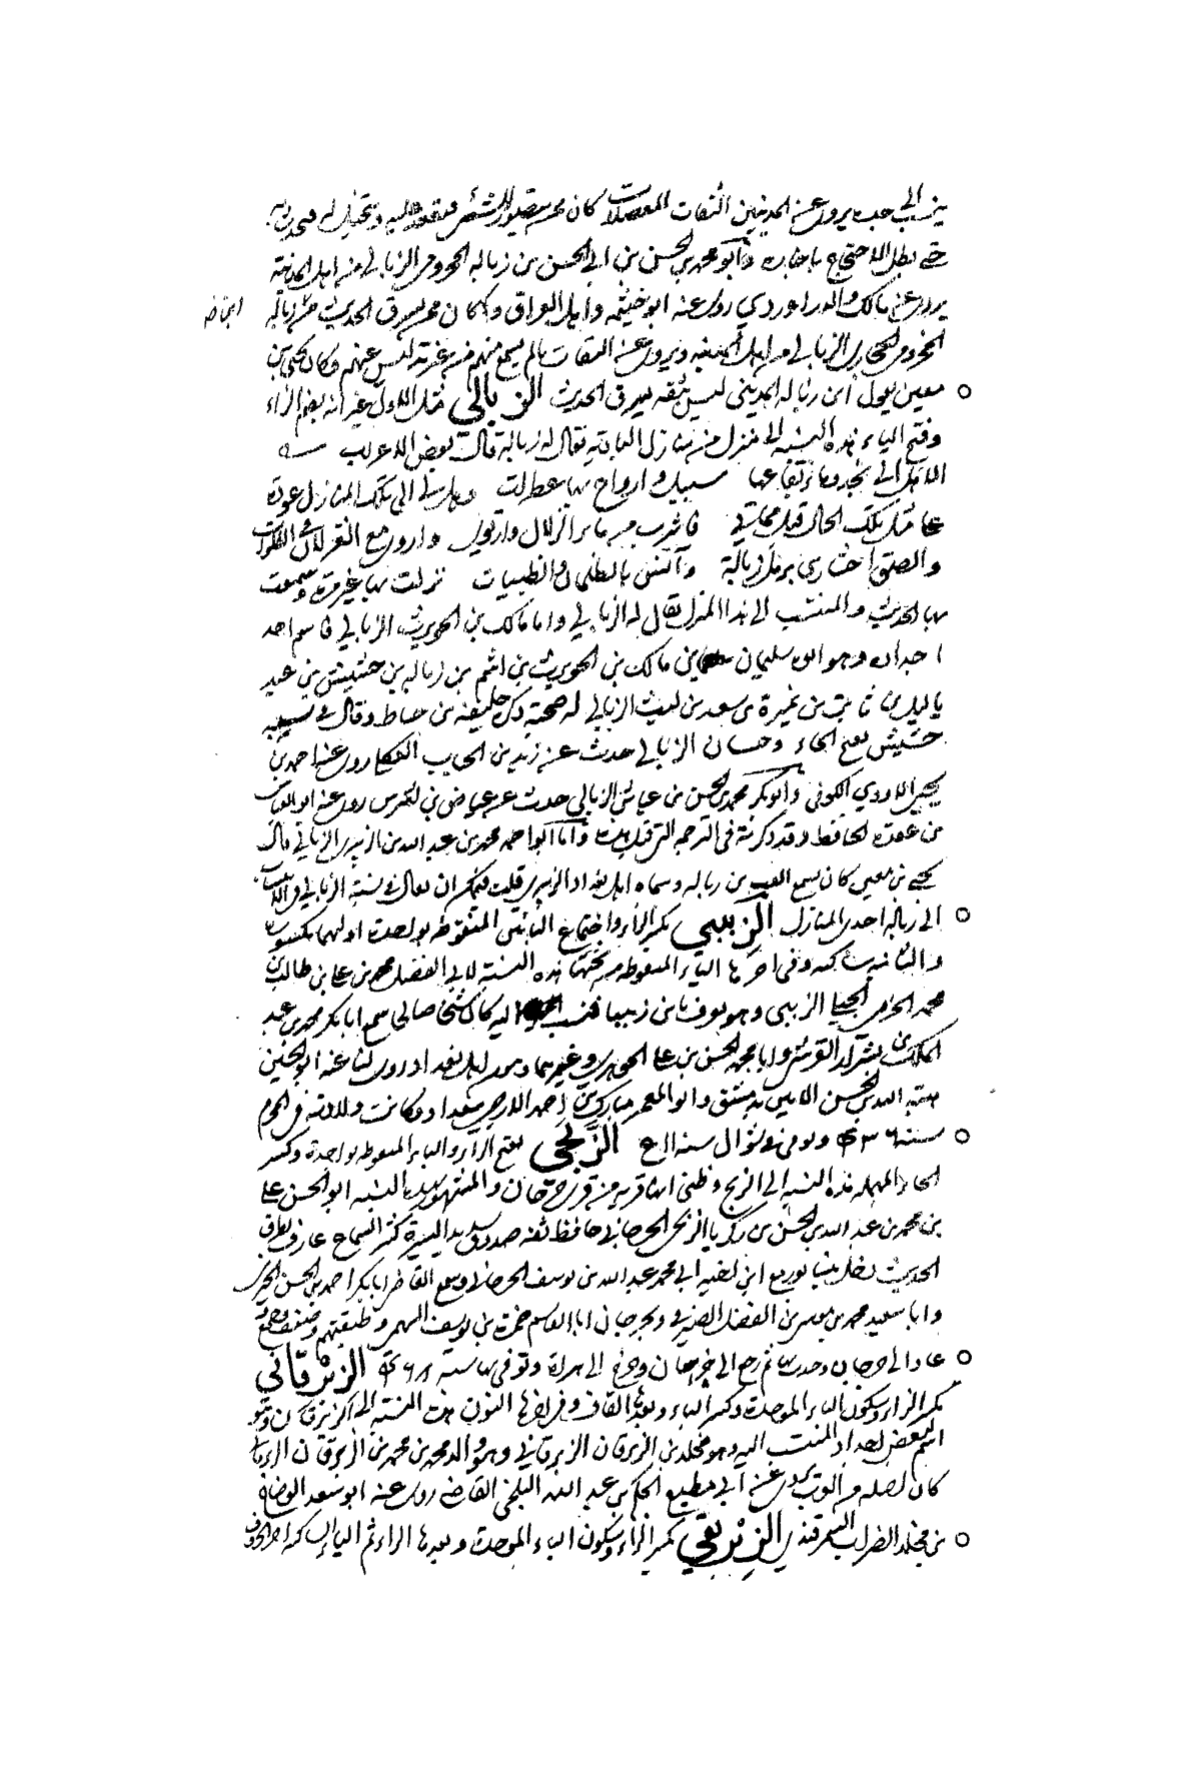 ينسب الى جده يروى عن المدنيين الثقات المعضلات كان ممن يتصور له الشئ
حتى بطل الاحتجاج باخباره وابو محمد بن الحسن بن ابى الحسن بن زباله المخزومى الزبالى من اهل المدينة
يروى عن مالك والدراوردي روى عنه ابو خيثمه واهل العراق وكان ممن يسرق الحديث
المخزومى الزبالى من اهل المدينه ويروى عن الثقات مالم يسمع منهم من غير تدليس عنهم وكان يحيى بن
معين يقول ابن زباله المدينى ليس بثقه يسرق الحديث الزبالي مثل الاول غير انه بضم الزاء
وفتح الباء هذه النسبة الى منزل من منازل الباديه يقال له زبالة قال بعض الاعراب
الا هل الى نجد وماء بقاعها سبيل وارواح بها عطرات وهل لى الى تلك المنازل عودة
على مثل تلك الحال قبل مماتي فاشرب من ماء الزلال وارتوي وارعى مع الغزلان فى الفلوات
والصق احشاى برمل زبالة وآنس بالظلمان والظبيات نزلت بها غير مرة وسمعت
بها الحديث والمنتسب الى هذا المنزل يقال له الزبالي واما مالك بن الحويرث الزبالي فاسم احد
اجداده وهو ابو سليمان مالك بن الحويرث بن اشيم بن زباله بن حشيش بن عبد
ياليل بن ناشب بن غيرة بن سعد بن ليث الزبالي له صحبة ذكره خليفه بن خياط وقال فى نسبه
حشيش بفتح الحاء وحسان الزبالي حدث عن زيد بن الحباب العكلى روى عنه احمد بن
يحيى الاودي الكوفى وابو بكر محمد بن الحسن بن عياش الزبالي حدث عن عياض بن اشرس روى عنه ابو العباس
بن عقده الحافظ وقد ذكرته فى الترجمه التى قبل هذه واما ابو احمد محمد بن عبد الله بن الزبير الزبالي قال
يحيى بن معين كان يسمع العب بن زباله وسماه اهل بغداد الزبيرى قلت فيمكن ان يقال فى نسبته الزبالي
الى زباله احدى المنازل الزبيبي بكسر الزاء واجتماع البائين المنقوطه بواحدة اولهما مكسوره
والثانيه ساكنه وفى اخرها الياء المنقوطه من تحتها هذه النسبة لابى الفضل محمد بن على بن طالب بن
محمد الزبيبى وهو يعرف بابن زبيبا فنسب اليه كان شيخا صالحا سمع ابا بكر محمد بن عبد
الملك بن بشران القرشى وابا محمد الحسن بن على الجوهرى وغيرهما من اهل بغداد روى لنا عنه ابو الحسين
هبة الله بن الحسن الامين بدمشق وابو المعمر مبارك بن احمد الازجى ببغداد وكانت ولادته فى المحرم
سنة ٤٣٦ وتوفى فى شوال سنة ٥١١ الزبحي بفتح الزاء والباء المنقوطه بواحدة وكسر
الحاء المهمله هذه النسبه الى الزبح وظنى انها قرية من قرى جرجان والمشهور بهذه النسبه ابو الحسن على
بن محمد بن عبد الله بن الحسن بن زكريا الزبحى الجرجانى حافظ ثقه صدوق سديد السيرة كثير السماع عارف بطرق
الحديث دخل نيسابور مع ابن اخيه ابى محمد عبد الله بن يوسف الجرجانى وسمع القاضى ابا بكر احمد بن الحسن الحيرى
وابا سعيد محمد بن موسى بن الفضل الصيرفى وبجرجان ابا القاسم حمزه بن يوسف السهمى وطبقتهم وصنف وجمع
عاد الى جرجان وحدث بها ثم رجع الى جرجان وخرج الى هراة وتوفى بها سنة ٤٦٨ الزبرقاني
بكسر الزاء وسكون الباء الموحدة وكسر الراء وبعدها القاف وفى اخرها النون هذه النسبة الى الزبرقان وهو
اسم لبعض اجداد المنتسب اليه وهو مخلد بن الزبرقان الزبرقاني وهو والد محمد بن محمد بن الزبرقان
كان اصله من يروى عن ابى مطيع الحكم بن عبد الله البلخى القاضى روى عنه ابو سعد الوضاح
بن مخلد الضراب السمرقندى الزبريقي بكسر الزاء وسكون الباء الموحدة وبعدها الراء ثم الياء الساكنه اخر الحروف